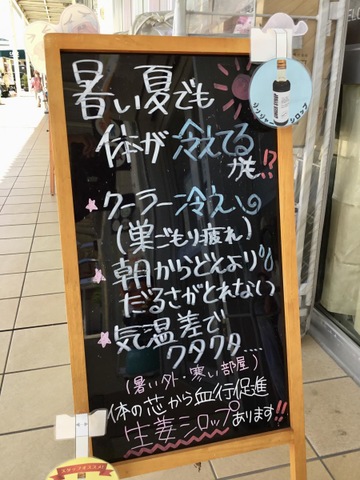 暑い夏でも
体が冷えてる
かも!?
ジンジャーシロップ
★クーラー冷え
(巣ごもり疲れ)
★朝からどんより
だるさがとれない
★気温差で
クタクタ…
(暑い外・寒い部屋)
体の芯から血行促進
生姜シロップあります!!